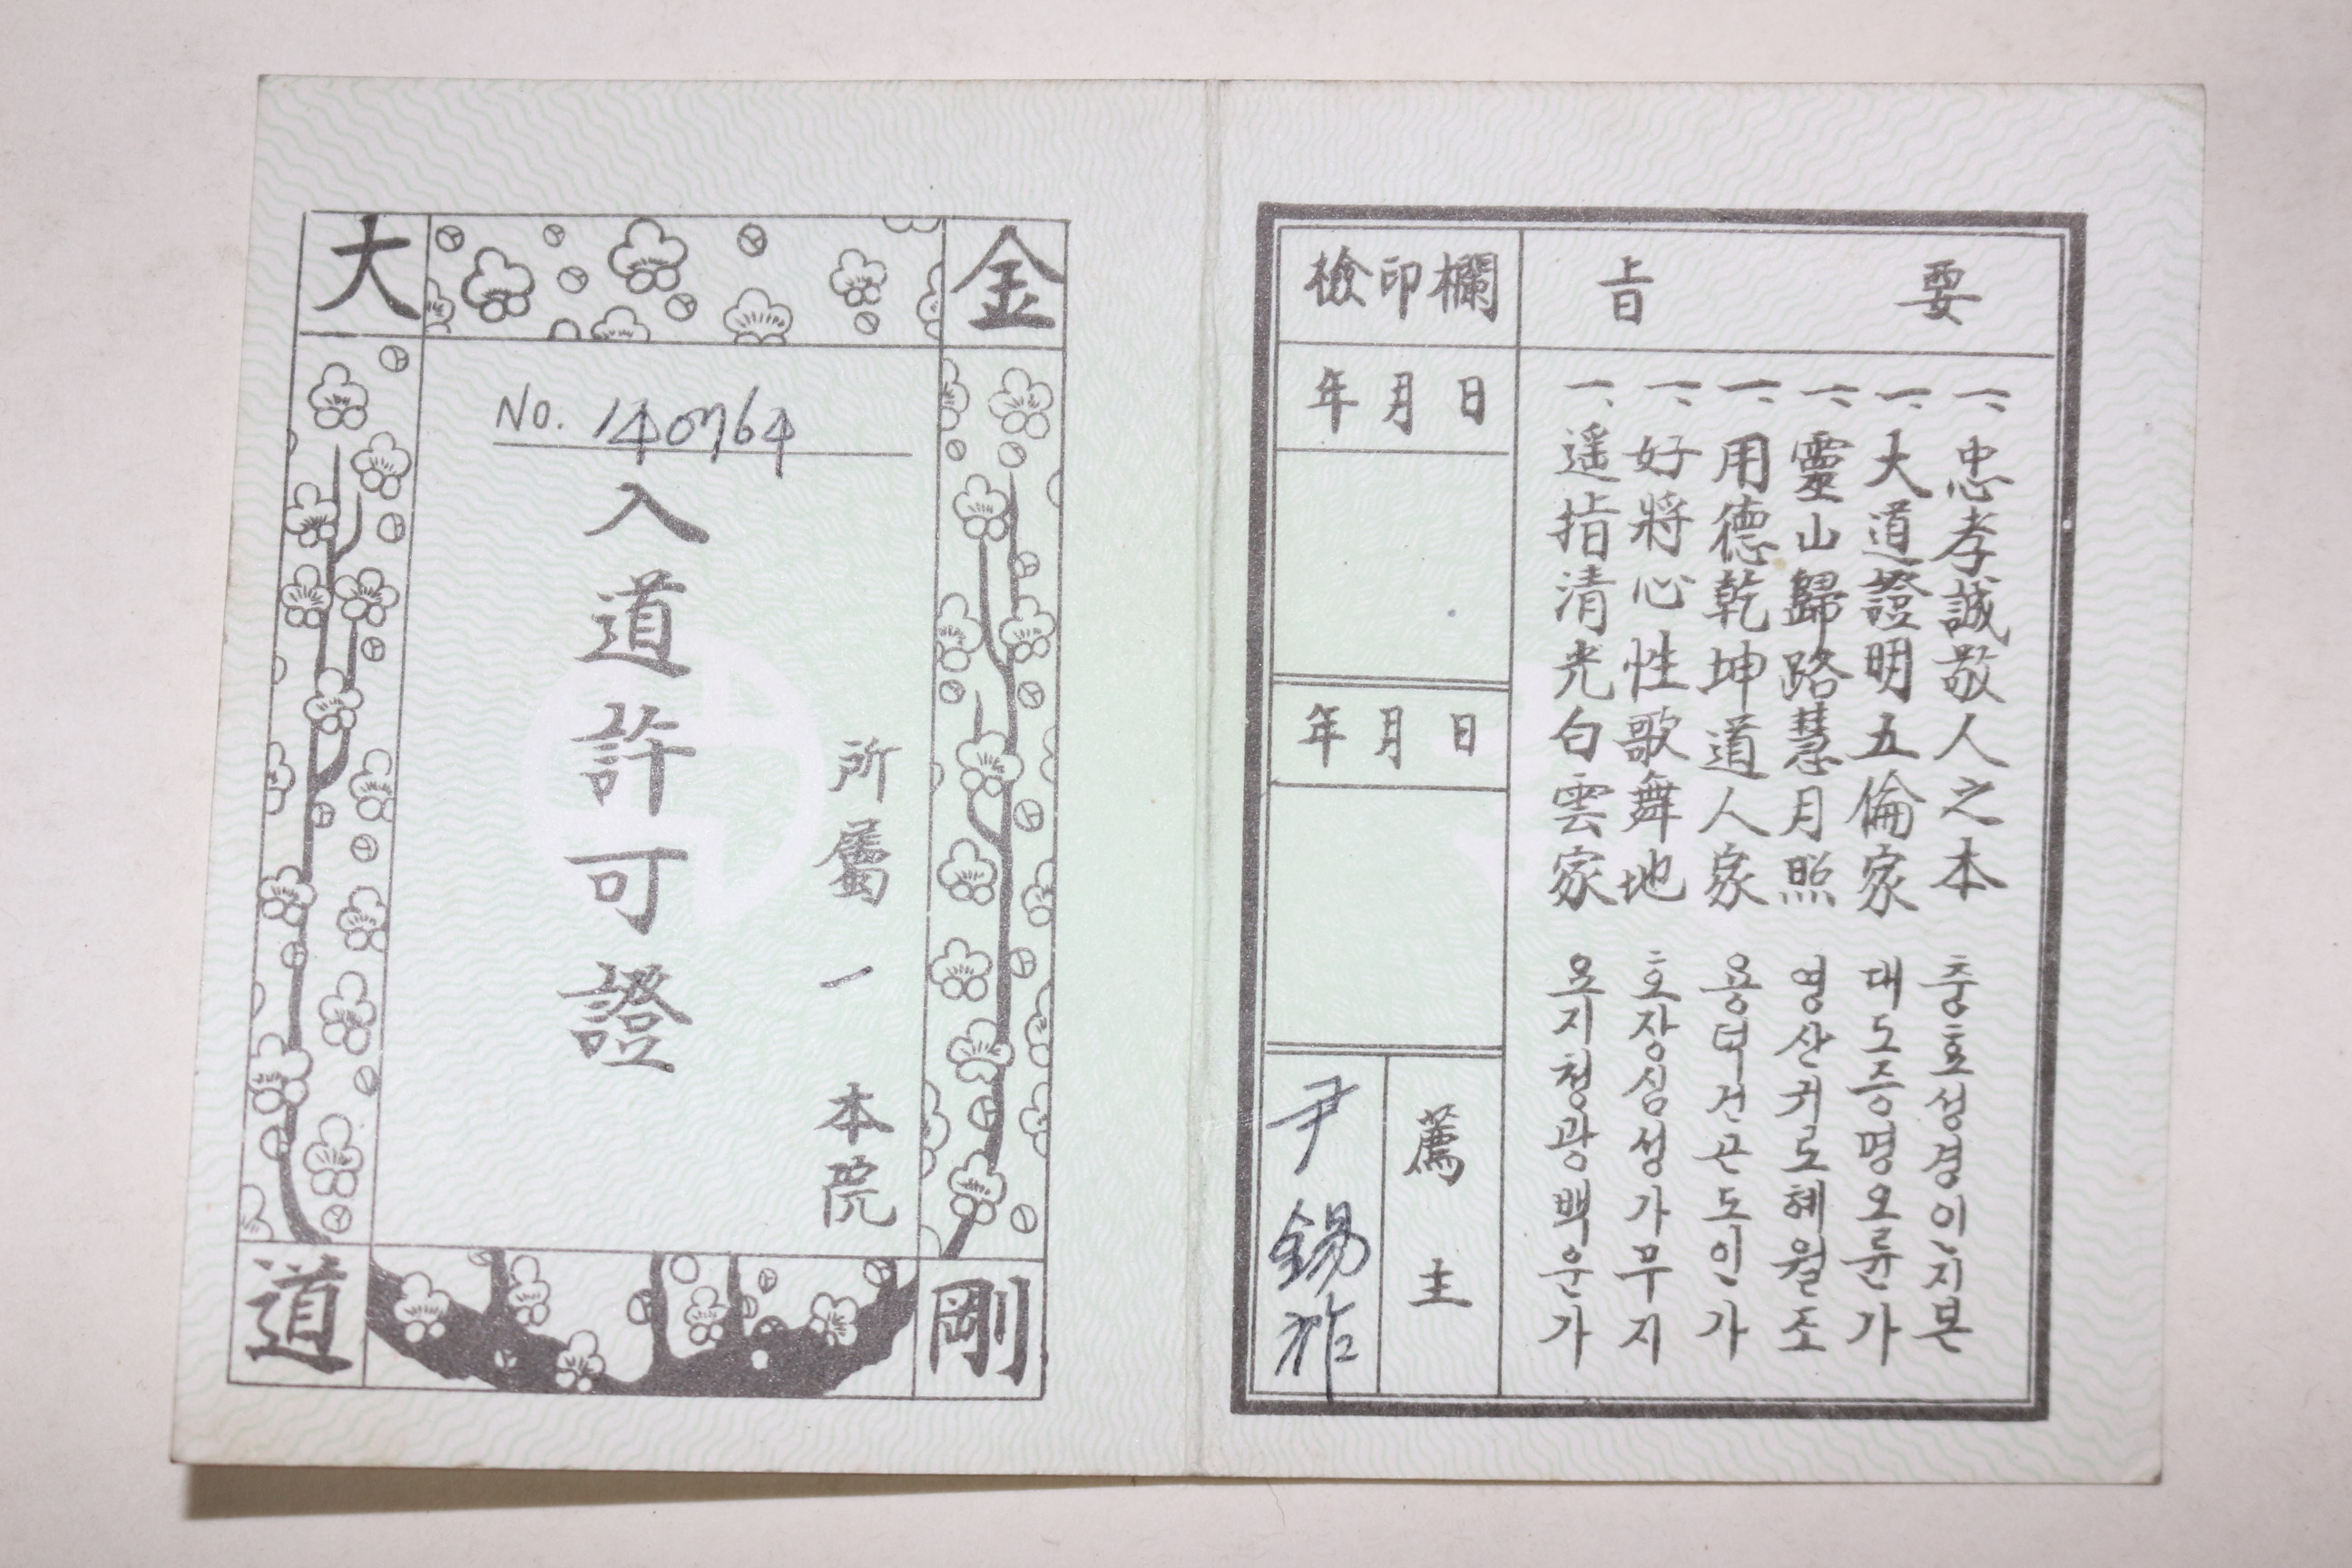 金剛大道
No. 140764
入道許可證
所屬 一 本院
要旨
一、忠孝誠敬人之本 충효성경인지본
一、大道證明五倫家 대도증명오륜가
一、靈山歸路慧月照 영산귀로혜월조
一、用德乾坤道人家 용덕건곤도인가
一、好將心性歌舞地 호장심성가무지
一、遥指清光白雲家 요지청광백운가
檢印欄
年月日
年月日
薦主
尹錫祚